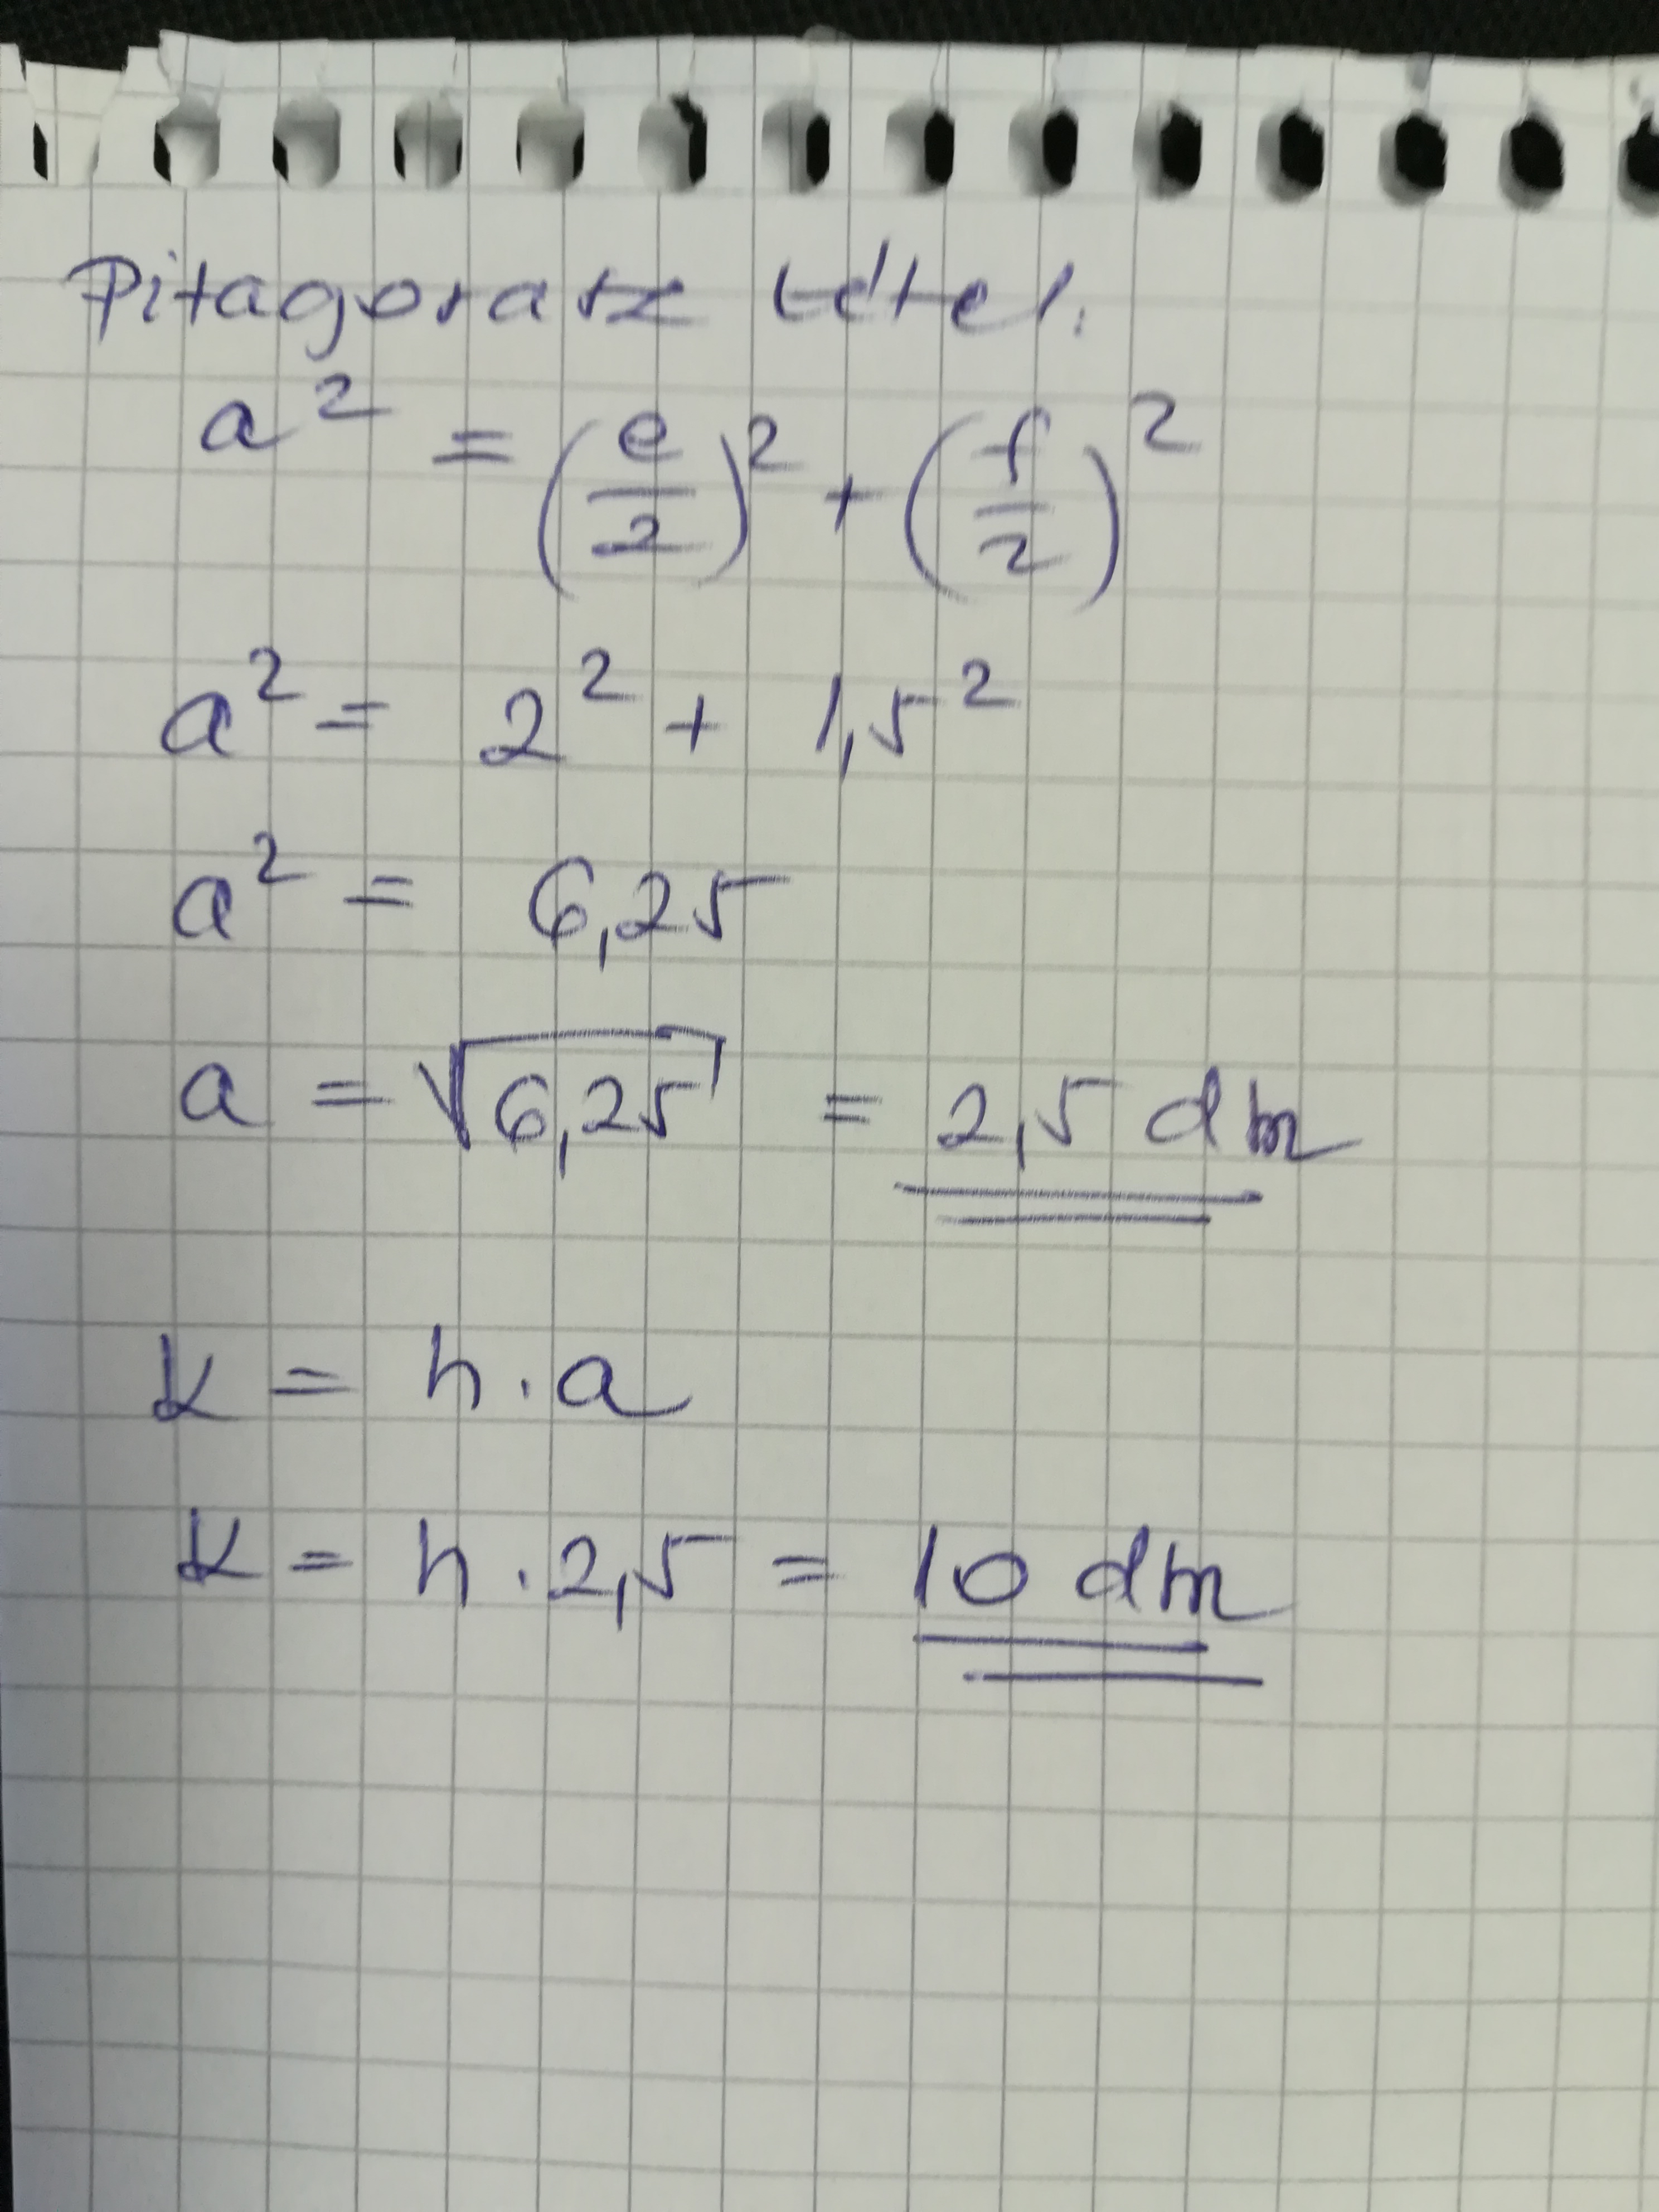 Pitagorasz tétel.
a² = (e/2)² + (f/2)²
a² = 2² + 1,5²
a² = 6,25
a = √6,25 = 2,5 dm
K = 4 · a
K = 4 · 2,5 = 10 dm